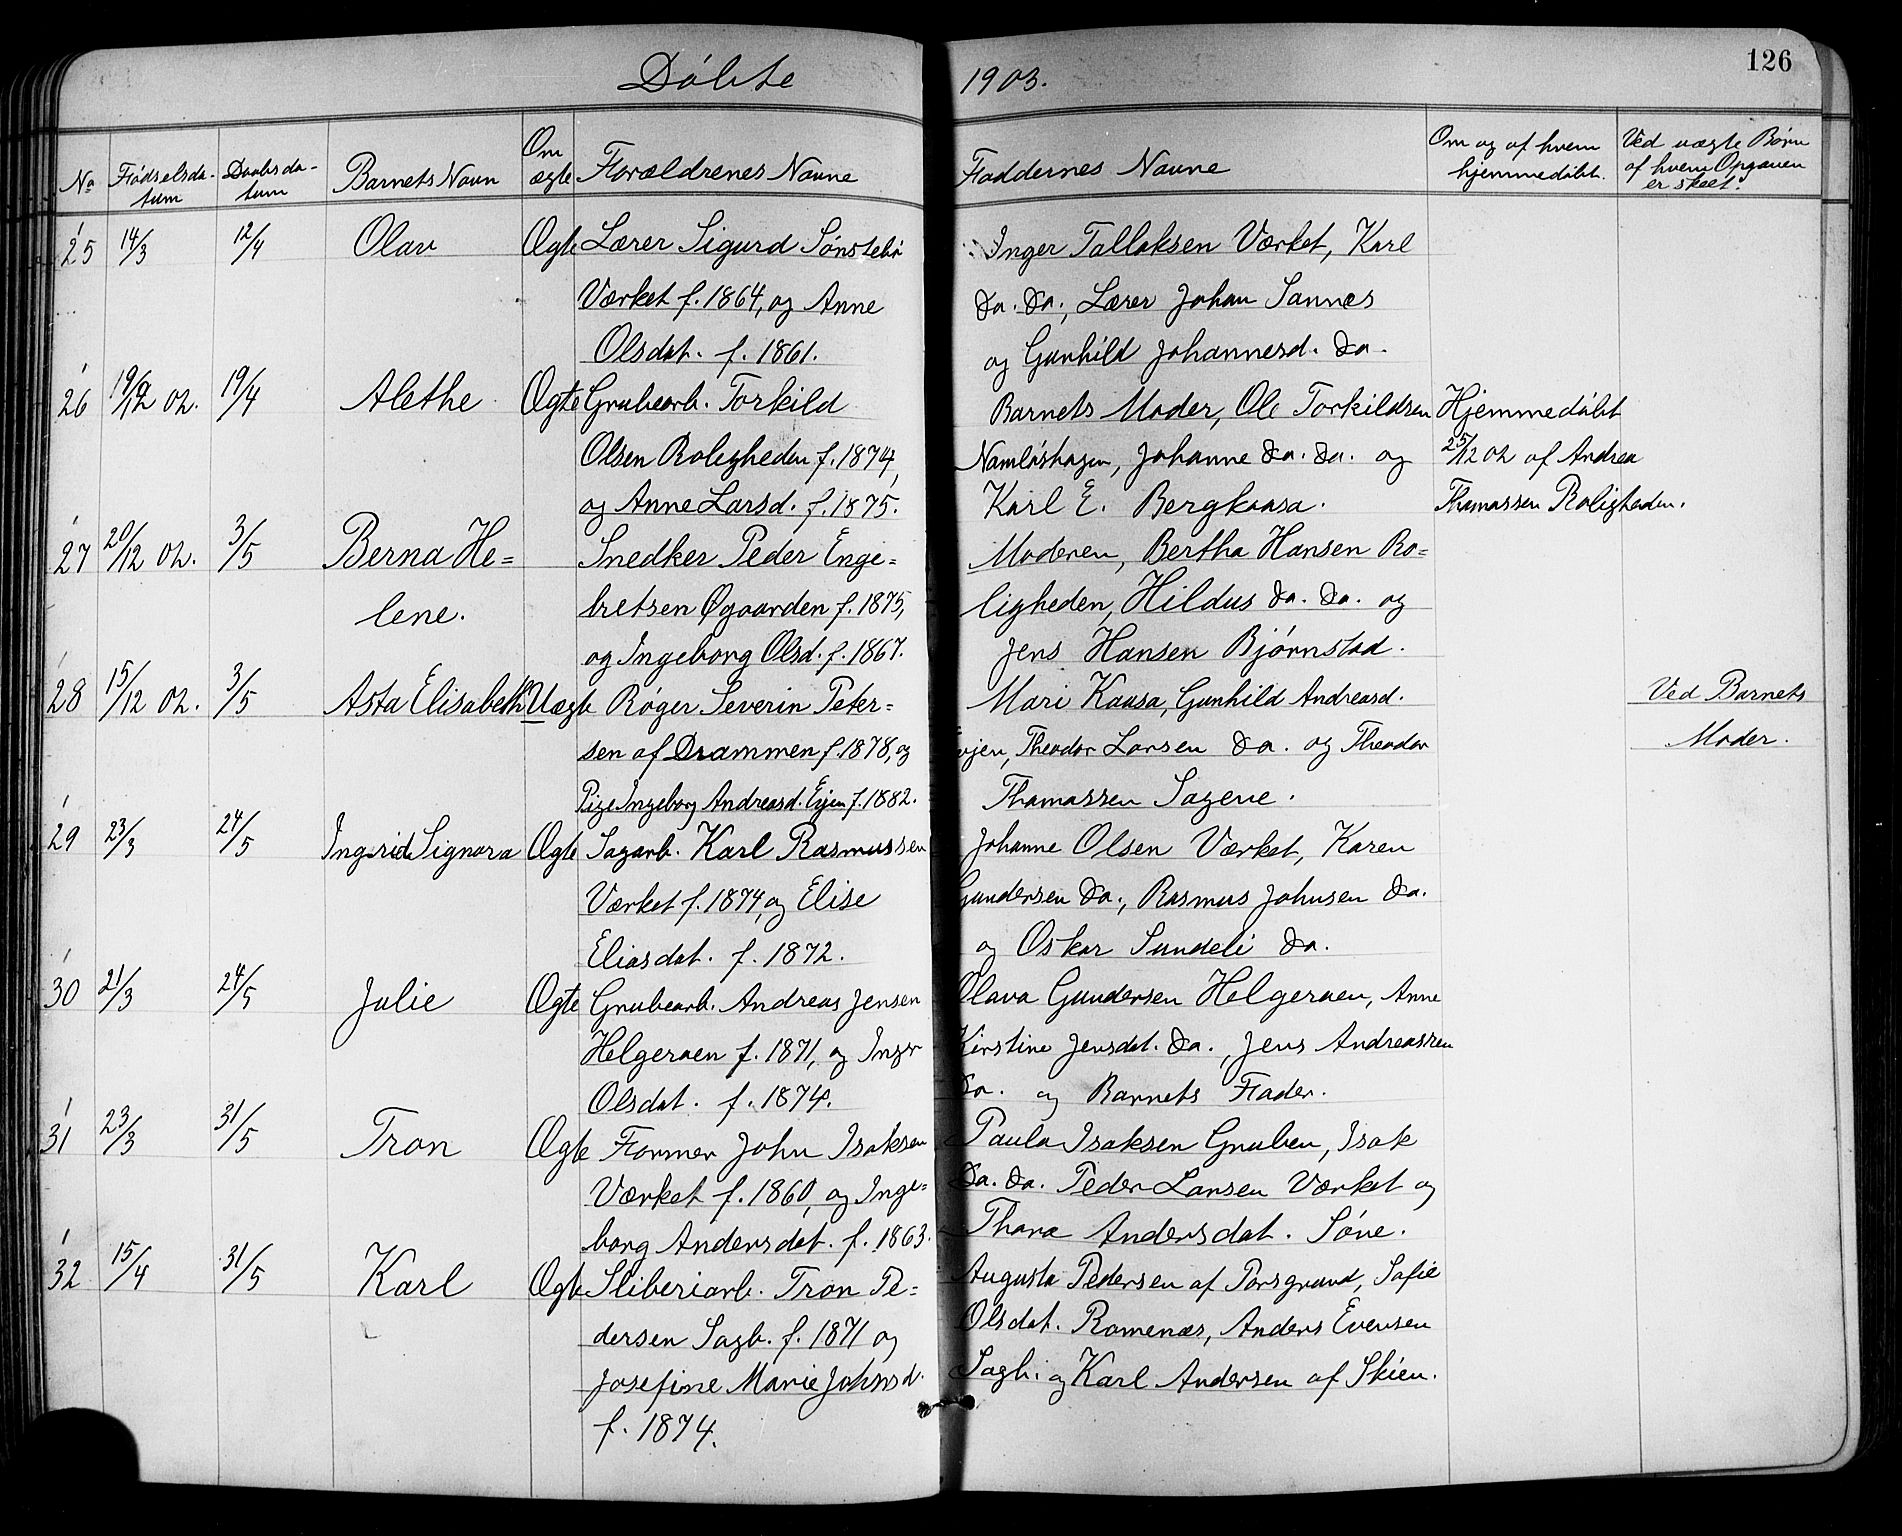 Døbte 1903.
126
No Fødselsda- Daabsda- Barnets Navn Om Forældrenes Navne Faddernes Navne Om og af hvem Ved uægte Børn
tum tum ægte hjemmedøbt. af hvem Opgaven
er skeet.
25 14/3 12/4 Olav Ægte Lærer Sigurd Sønstebø Inger Tallaksen Værket, Karl
Værket f. 1864, og Anne do. do., Lærer Johan Sannes
Olsdat. f. 1861. og Gunhild Johannesd. do.
26 19/12 02. 19/4 Alethe Ægte Grubearb. Torkild Barnets Moder, Ole Torkildsen Hjemmedøbt
Olsen Roligheden f. 1874, Namløshagen, Johanne do. do. og 25/12 02 af Andrea
og Anne Larsd. f. 1875. Karl E. Bergkaasa. Thomassen Roligheden.
27 20/12 02. 3/5 Berna He= Snedker Peder Enge= Moderen, Bertha Hansen Ro=
lene. bretsen Øgaarden f. 1875, ligheden, Hildus do. do. og
og Ingeborg Olsd. f. 1867. Jens Hansen Bjørnstad.
28 15/12 02. 3/5 Asta Elisabeth Uægte Røger Severin Peter= Mari Kaasa, Gunhild Andreasd. Ved Barnets
sen af Drammen f. 1878, og Evjen, Theodor Larsen do. og Theodor Moder.
Pige Ingeborg Andreasd. Evjen f. 1882. Thomassen Sagene.
29 23/3 24/5 Ingrid Signora Ægte Sagarb. Karl Rasmussen Johanne Olsen Værket, Karen
Værket f. 1874, og Elise Gundersen do., Rasmus Johnsen do.
Eliasdat. f. 1872. og Oskar Sundeli do.
30 21/3 24/5 Julie Ægte Grubearb. Andreas Jensen Olava Gundersen Helgeraen, Anne
Helgeraen f. 1871, og Inger Kirstine Jensdat. do., Jens Andreassen
Olsdat. f. 1874. do. og Barnets Fader.
31 23/3 31/5 Tron Ægte Former John Isaksen Paula Isaksen Gruben, Isak
Værket f. 1860, og Inge= do. do. Peder Larsen Værket og
borg Andersdat. f. 1863. Thora Andersdat. Søve.
32 15/4 31/5 Karl Ægte Sliberiarb. Tron Pe= Augusta Pedersen af Porsgrund, Sofie
dersen Sagb. f. 1871 og Olsdat. Romenæs, Anders Evensen
Josefine Marie Johnsd. Sagb. og Karl Andersen af Skien.
f. 1874.